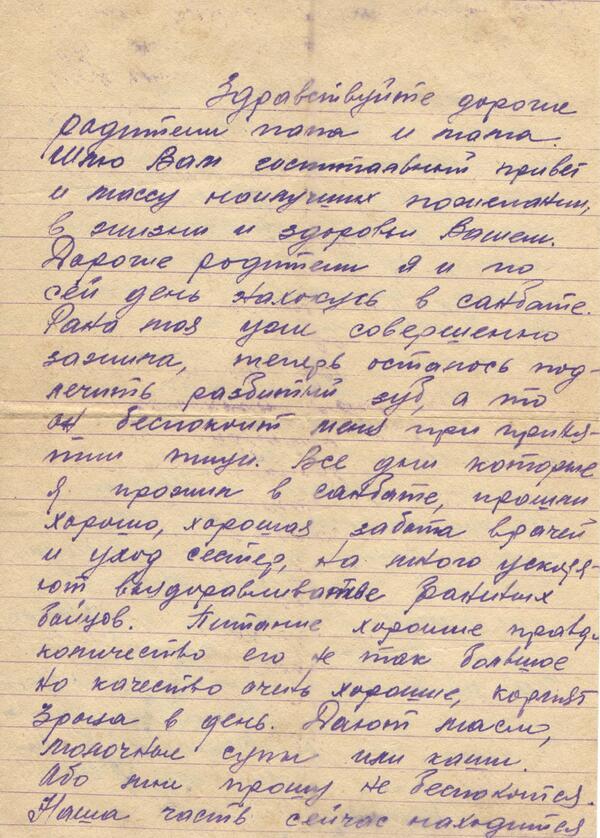 Здравствуйте дорогие
родители папа и мама.
Шлю Вам госпитальный привет
и массу наилучших пожелании,
в жизни и здоровьи Вашем.
Дорогие родители я и по
сей день нахожусь в санбате.
Рана моя уже совершенно
зажила, теперь осталось под-
лечить разбитый зуб, а то
он беспокоит меня при приня-
тии пищи. Все дни которые
я прожил в санбате, прошли
хорошо, хорошая забота врачей
и уход сестер, на много ускоря-
ют выздоравливание раненых
бойцов. Питание хорошие правда
количество его не так большое
но качество очень хорошие, кормят
3 раза в день. Дают масло,
молочные супы или каши.
Або мни прошу не беспокоится.
Наша часть сейчас находится